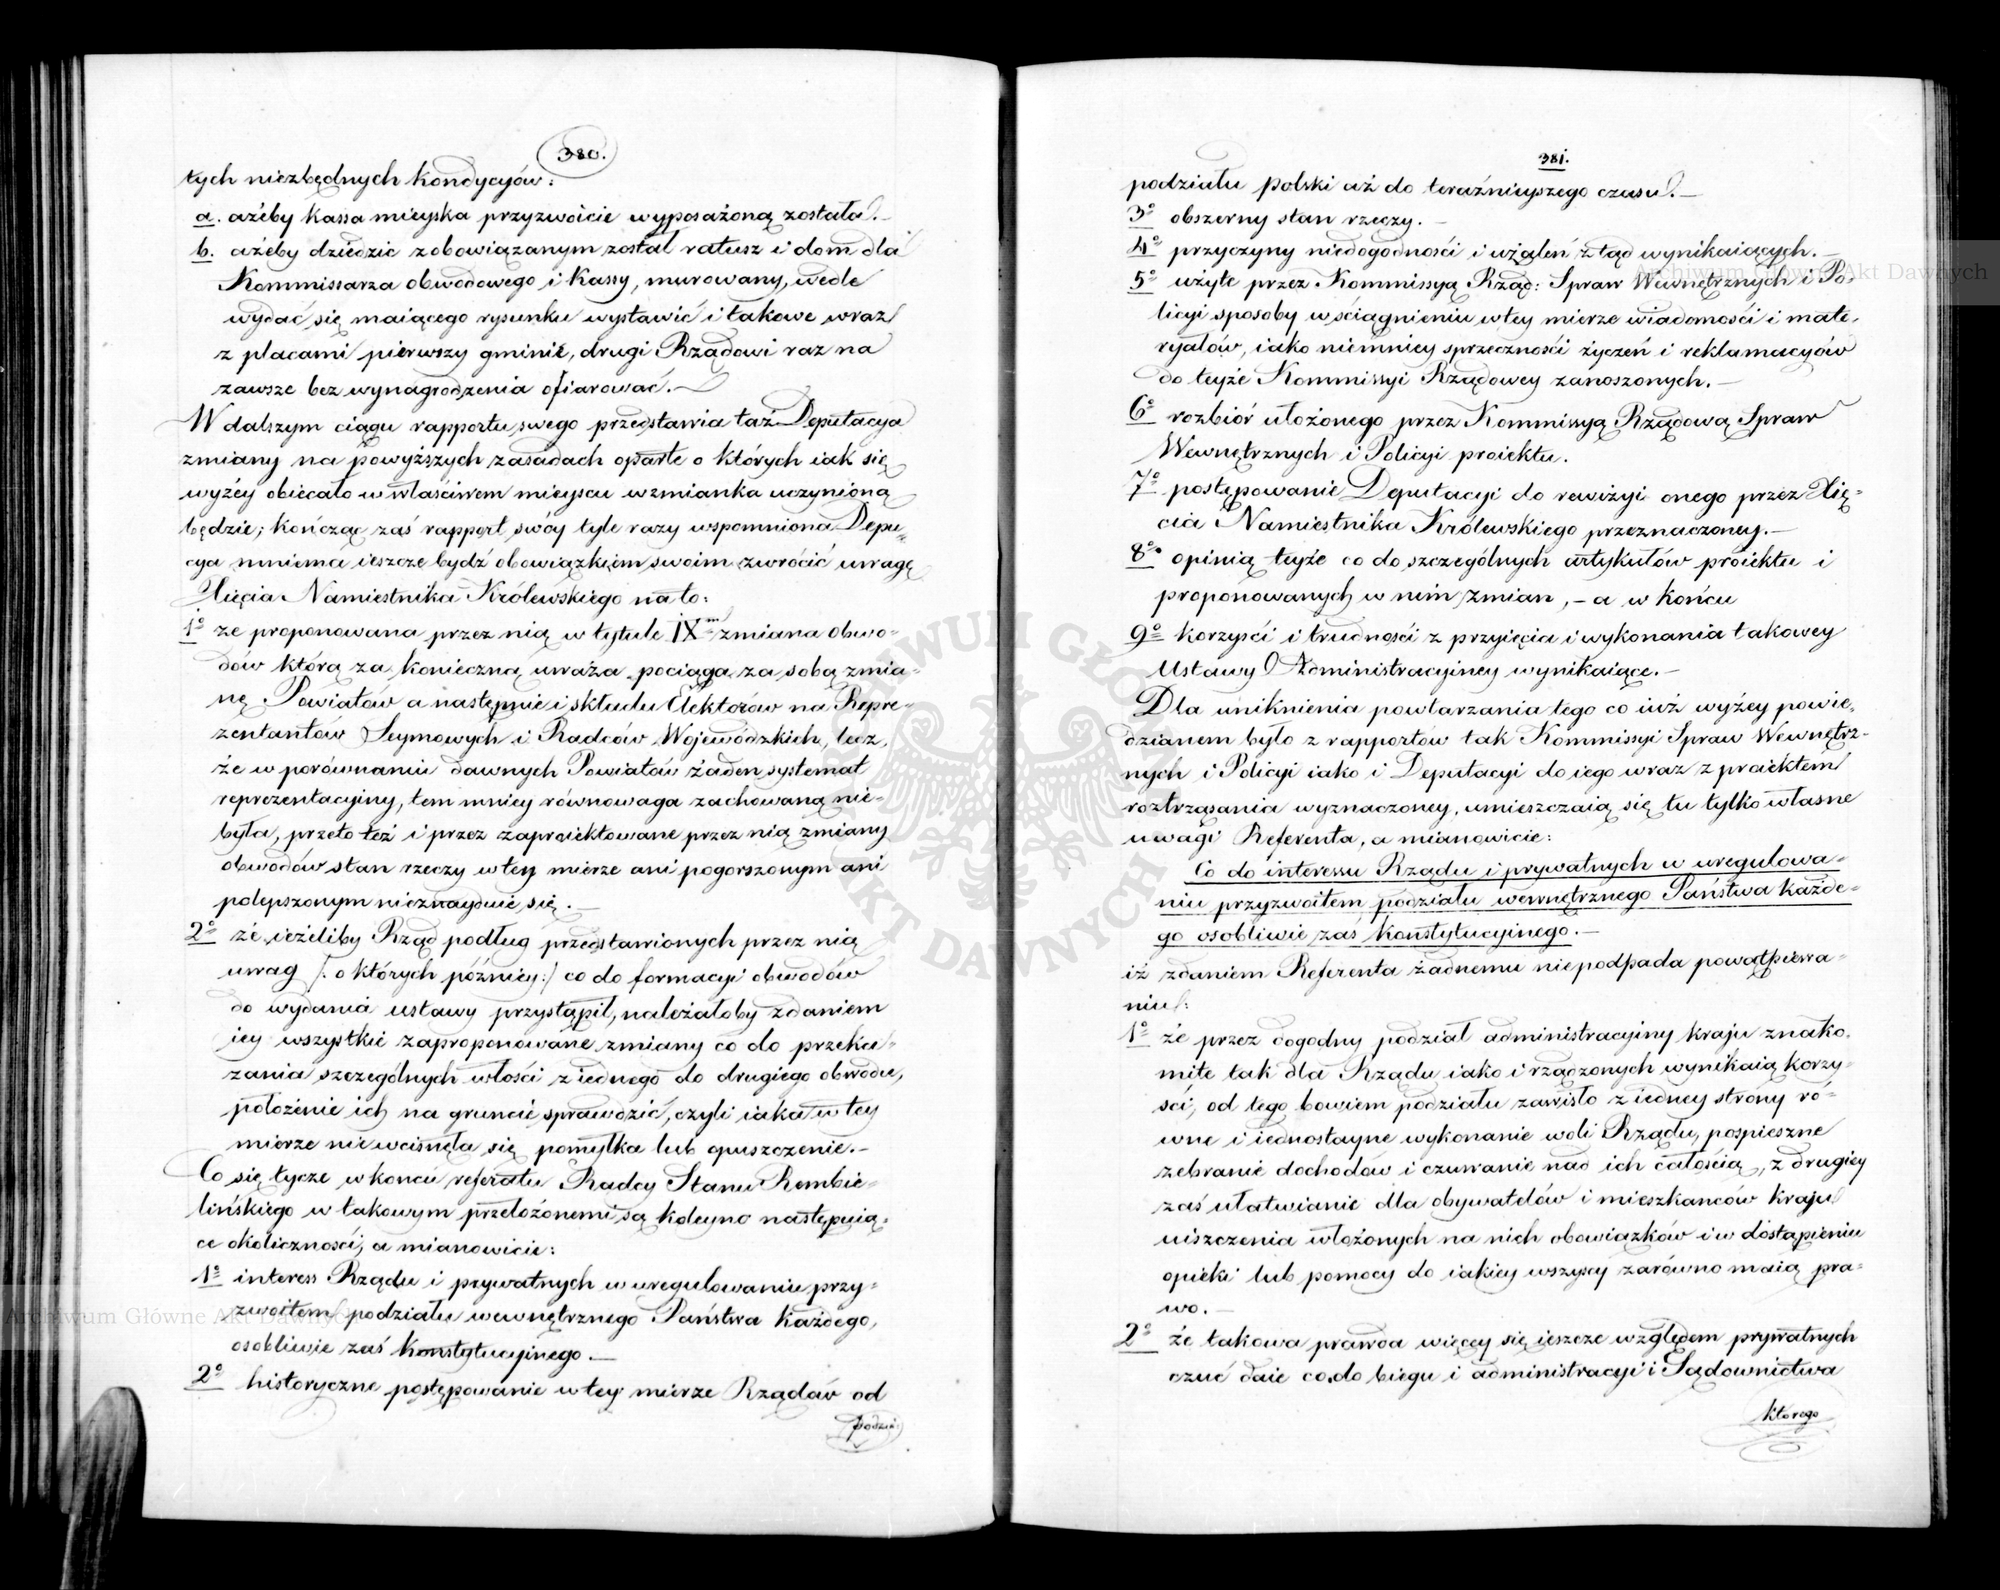 380.
tych niezbędnych kondycyów:
a. ażeby kassa mieyska przyzwoicie wyposażoną została.—
b. ażeby dziedzic zobowiązanym został ratusz i dom dla
Kommissarza obwodowego i Kassy, murowany, wedle
wydać się maiącego rysunku wystawić i takowe wraz
z placami pierwszy gminie, drugi Rządowi raz na
zawsze bez wynagrodzenia ofiarować.—
W dalszym ciągu rapportu swego przedstawia taż Deputacya
zmiany na powyższych zasadach oparte o których iak się
wyżey obiecało w właściwem mieyscu wzmianka uczynioną
będzie; kończąc zaś rapport swóy tyle razy wspomniona Depu-
cya mniema ieszcze bydź obowiązkiem swoim zwrócić uwagę
Xięcia Namiestnika Królewskiego na to:
1º że proponowana przez nią w tytule IXm zmiana obwo-
dów którą za konieczną uważa pociąga za sobą zmia-
nę Powiatów a następnie i składu Elektorów na Repre-
zentantów Seymowych i Radców Wojewódzkich, lecz,
że w porównaniu dawnych Powiatów żaden systemat
reprezentacyiny, tem mniey równowaga zachowaną nie-
była, przeto też i przez zaproiektowane przez nią zmiany
obwodów stan rzeczy w tey mierze ani pogorszonym ani
polepszonym nieznayduie się.—
2º że ieżeliby Rząd podług przedstawionych przez nią
uwag /: o których późniey :/ co do formacyi obwodów
do wydania ustawy przystąpił, należałoby zdaniem
iey wszystkie zaproponowane zmiany co do przeka-
zania szczególnych włości z iednego do drugiego obwodu,
położenie ich na gruncie sprawdzić, czyli iaka w tey
mierze nie wcisnęła się pomyłka lub opuszczenie.—
Co się tycze w końcu referatu Radcy Stanu Rembie-
lińskiego w takowym przełożonemi są koleyno następuią-
ce okoliczności, a mianowicie:
1º interess Rządu i prywatnych w uregulowaniu przy-
zwoitem podziału wewnętrznego Państwa każdego,
osobliwie zaś konstytucyinego.—
2º historyczne postępowanie w tey mierze Rządów od
podzia:
381.
podziału polski aż do teraźnieyszego czasu.—
3º obszerny stan rzeczy.—
4º przyczyny niedogodności i użaleń ztąd wynikaiących.—
5º użyte przez Kommissyą Rząd: Spraw Wewnętrznych i Po-
licyi sposoby w ściągnieniu w tey mierze wiadomości i mate-
ryałów, iako niemniey sprzeczności życzeń i reklamacyów
do teyże Kommissyi Rządowey zanoszonych.—
6º rozbiór ułożonego przez Kommissyą Rządową Spraw
Wewnętrznych i Policyi proiektu.
7º postępowanie Deputacyi do rewizyi onego przez Xię-
cia Namiestnika Królewskiego przeznaczoney.—
8º opinią teyże co do szczególnych artykułów proiektu i
proponowanych w nim zmian,— a w końcu
9º korzyści i trudności z przyięcia i wykonania takowey
Ustawy Administracyiney wynikaiące.—
Dla uniknienia powtarzania tego co iuż wyżey powie-
dzianem było z rapportów tak Kommissyi Spraw Wewnętrz-
nych i Policyi iako i Deputacyi do iego wraz z proiektem
roztrząsania wyznaczoney, umieszczaią się tu tylko własne
uwagi Referenta, a mianowicie:
Co do interessu Rządu i prywatnych w uregulowa-
niu przyzwoitem podziału wewnętrznego Państwa każde-
go osobliwie zaś konstytucyinego.—
iż zdaniem Referenta żadnemu niepodpada powątpiewa-
niu:
1º że przez dogodny podział administracyiny kraju znako-
mite tak dla Rządu iako i rządzonych wynikaią korzy-
ści, od tego bowiem podziału zawisło z iedney strony ró-
wne i iednostayne wykonanie woli Rządu, pospieszne
zebranie dochodów i czuwanie nad ich całością, z drugiey
zaś ułatwianie dla obywatelów i mieszkanców kraju
uiszczenia włożonych na nich obowiązków i w dostąpieniu
opieki lub pomocy do iakiey wszyscy zarówno maią pra-
wo.—
2º że takowa prawda więcey się ieszcze względem prywatnych
czuć daie co do biegu i administracyi i Sądownictwa
którego
Archiwum Główne Akt Dawnych
Archiwum Główne Akt Dawnych
ARCHIWUM GŁÓWNE AKT DAWNYCH